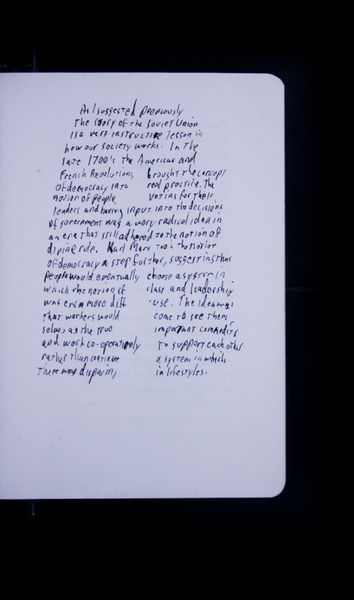 As I suggested previously
the story of the Soviet Union
is a very instructive lesson in
how our society works. In the
late 1700's the American and
French Revolutions brought the concept
of democracy into real practice. The
notion of people voting for their
leaders and having input into the decisions
of government was a very radical idea in
an era that still adhered to the notion of
divine rule. Karl Marx took the notion
of democracy a step further, suggesting that
people would eventually choose a system in
which the notion of class and leadership
was even more diff use. The idea was
that workers would come to see them
selves as the true important commodity
and work co-operatively to support each other
rather than a system in which
there was disparity in lifestyles.